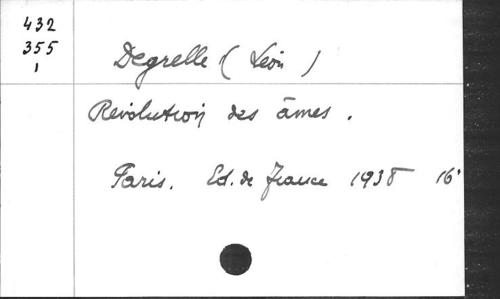 432
355
1
Degrelle (Léon)
Révolution des âmes.
Paris. Ed. de France 1938 16°